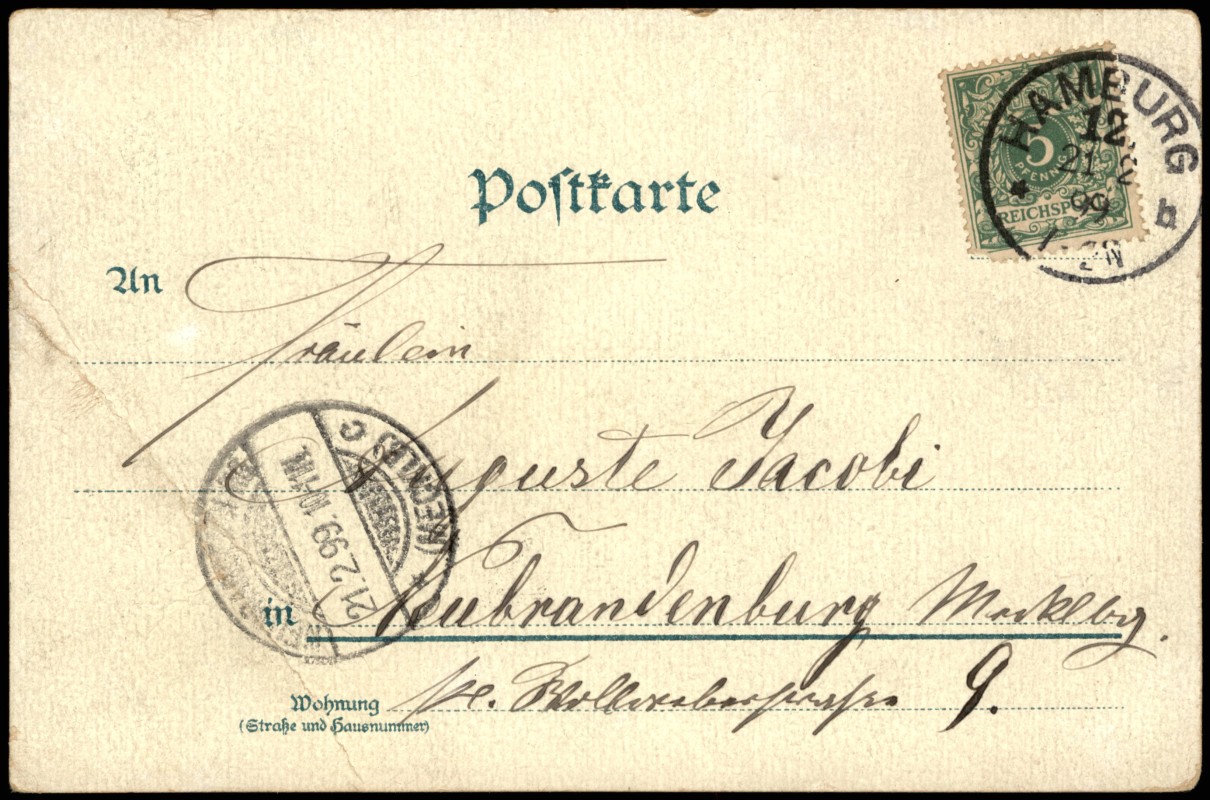 Postkarte
HAMBURG
12.
21 2
99
N
b
5
PFENNIG
REICHSPO
An
Fräulein
Auguste Jacobi
in Neubrandenburg Mecklbg.
Wohnung kl. Wollweberstrasse 9.
(Straße und Hausnummer)
(MECKLB) C
21.2.99. 10-11N.